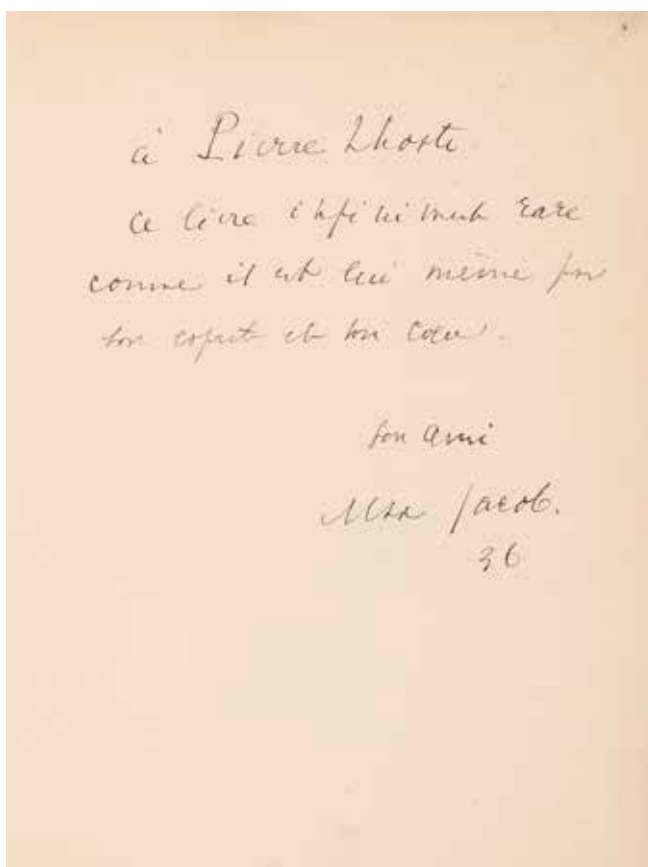 à Pierre Lhoste
ce livre infiniment rare
comme il est lui même par
son esprit et son coeur.
son ami
Max Jacob.
36